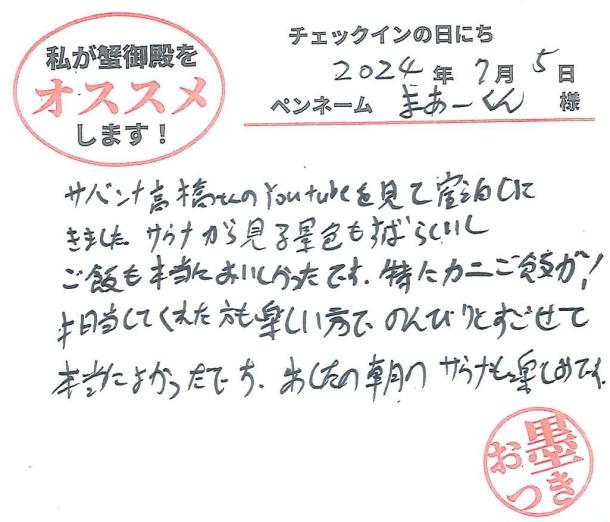 私が蟹御殿を
オススメ
します！
チェックインの日にち
2024年7月5日
ペンネーム まあーくん 様
サバンナ高橋さんのYoutubeを見て宿泊しに
きました。サウナから見る景色もすばらしいし
ご飯も本当においしかったです。特にカニご飯が！
担当してくれた方も楽しい方で、のんびりとすごせて
本当によかったです。あしたの朝のサウナも楽しみです。
お墨
つき